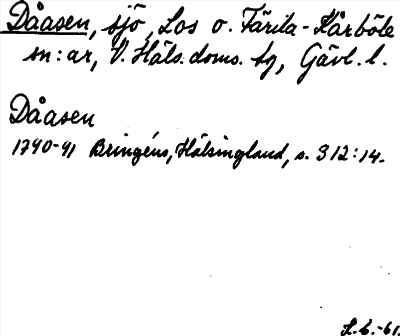 Dåasen, sjö, Los o. Färila-Kårböle
sn:ar, V. Häls. doms. tg, Gävl. l.
Dåasen
1790-91 Bringéus, Hälsingland, s. 312:14.
S.B.-61.